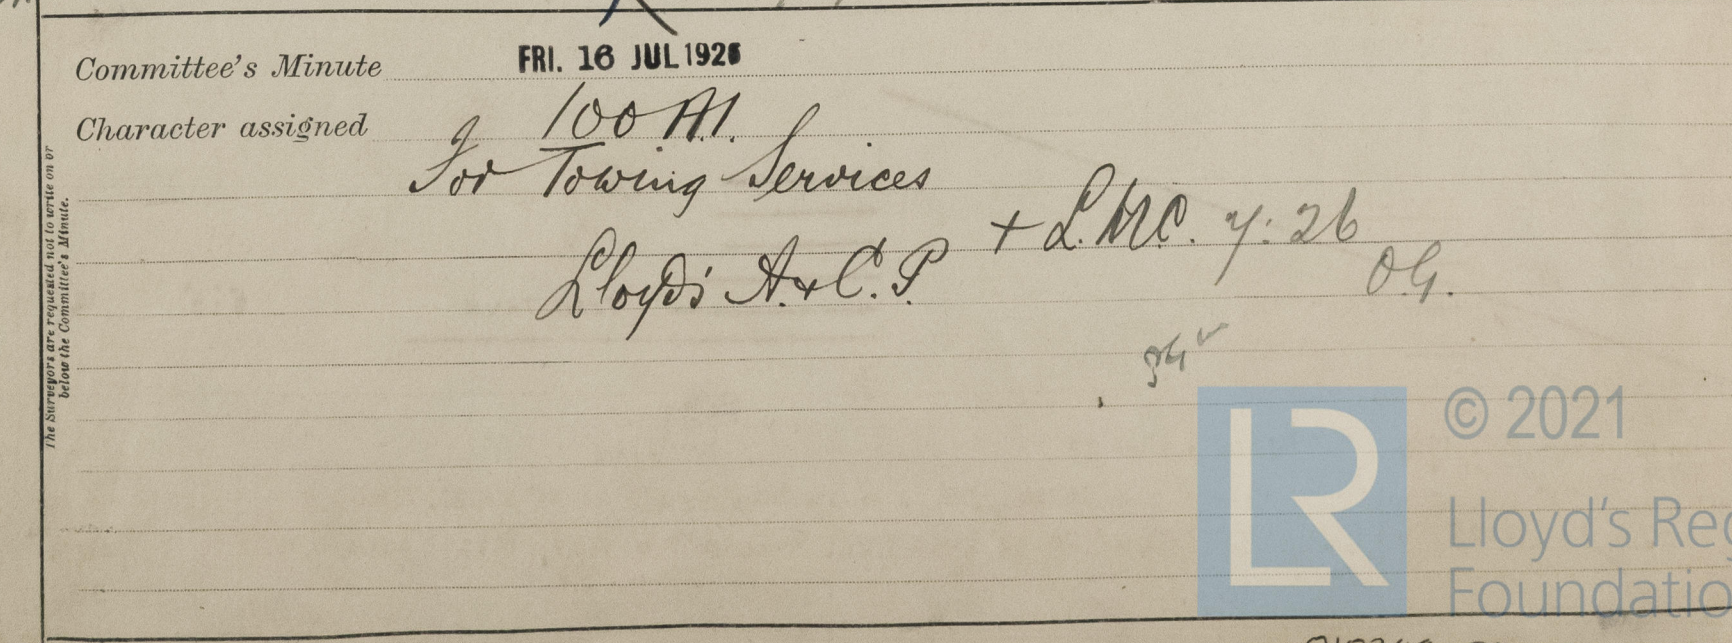 Committee's Minute FRI. 16 JUL 1926
Character assigned 100 A.1.
For Towing Services
+ L.M.C. 7: 26
Lloyd's A. & C. P. O.G.
The Surveyors are requested not to write on or
below the Committee's Minute.
LR
© 2021
Lloyd's Reg
Foundatio